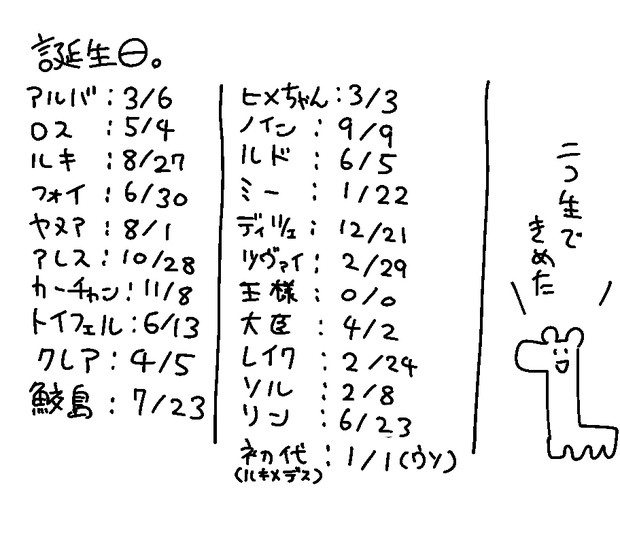 誕生日。
アルバ:3/6
ロス:5/4
ルキ:8/27
フォイ:6/30
ヤヌア:8/1
アレス:10/28
カーチャン:11/8
トイフェル:6/13
クレア:4/5
鮫島:7/23
ヒメちゃん:3/3
ノイン:9/9
ルド:6/5
ミー:1/22
ディツェ:12/21
ツヴァイ:2/29
王様:0/0
大臣:4/2
レイク:2/24
ソル:2/8
リン:6/23
初代:1/1(ウソ)
(ルキメデス)
ニコ生で
きめた